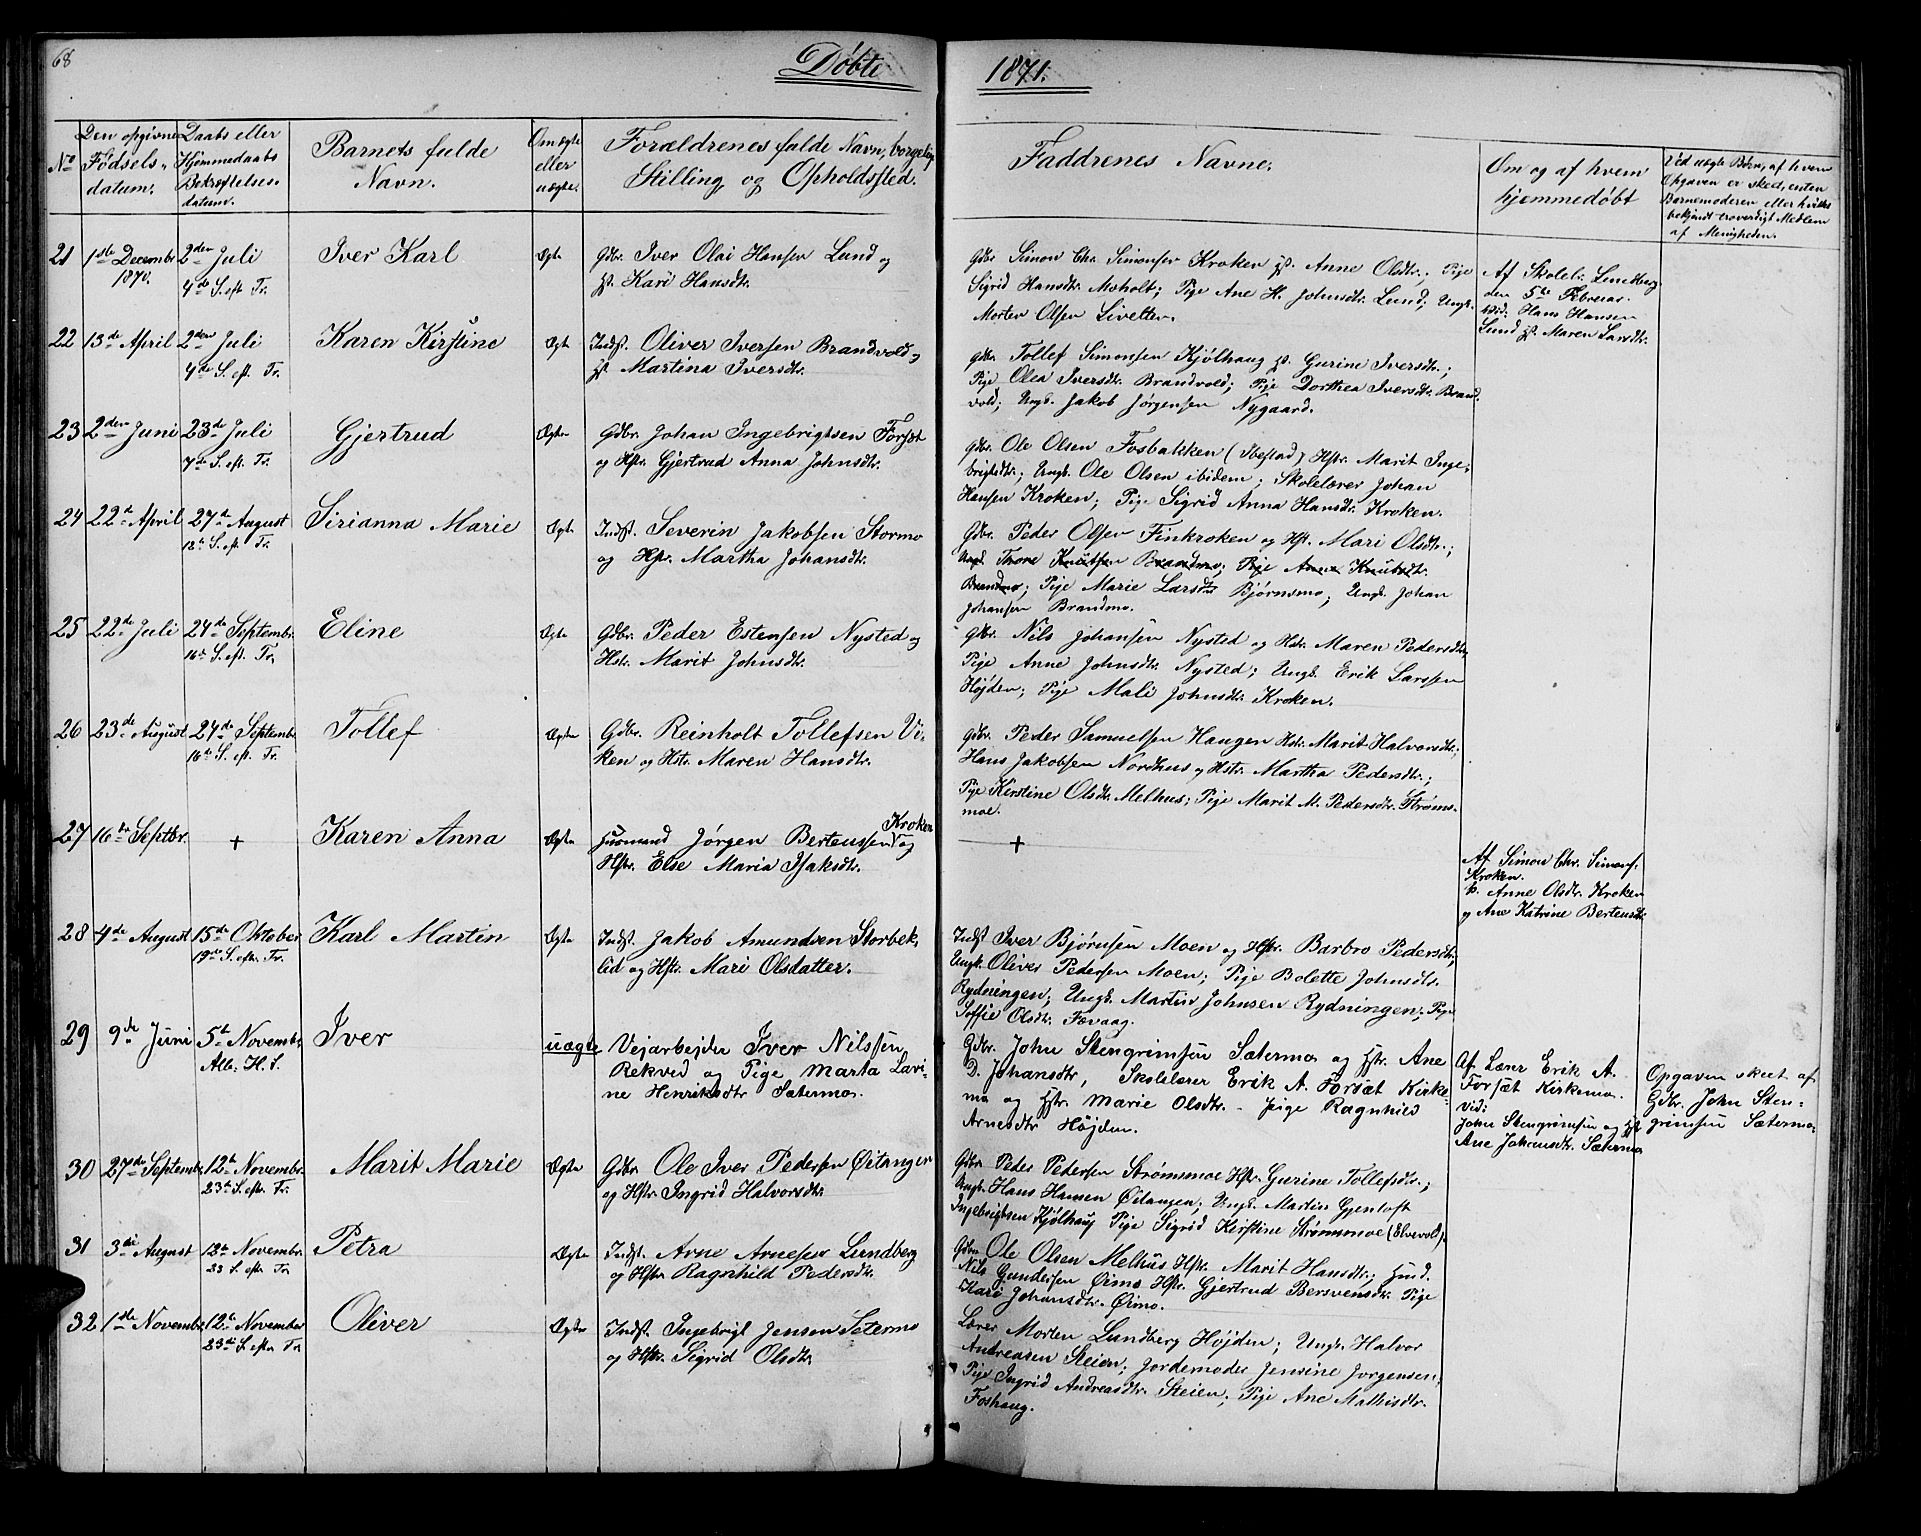 68
Døbte
1871.
No
Den opgivne
Fødsels-
datum.
Daabs eller
Hjemmedaabs
Bekræftelses-
datum.
Barnets fulde
Navn.
Om ægte
eller
uægte.
Forældrenes fulde Navn, borgelige
Stilling og Opholdssted.
Faddrenes Navne.
Om og af hvem
hjemmedøbt
Ved uægte Børn, af hvem
Opgaven er skeet, enten
Barnemoderen eller hvilke
bekjendt troværdigt Medlem
af Menigheden.
21
1ste Decembr
1870.
2den Juli
4de S. eft Tr.
Iver Karl
Ægte
Gdbr. Iver Olai Hansen Lund og
H. Kari Hansdtr.
Gdbr. Simon Chr. Simonsen Kroken H. Anne Olsdtr.; Pige
Sigrid Hansdtr. Moholt; Pige Ane H. Johnsdtr. Lund; Ungk.
Morten Olsen Livetten.
Af Skolel. Lundberg
den 5te Februar.
vid: Hans Hansen
Lund H. Maren Larsdtr.
22
13de April
2den Juli
4de S. eft. Tr.
Karen Kirstine
Ægte
Indst. Oliver Iversen Brandvold og
H. Martina Iversdtr.
Gdbr. Tollef Simonsen Kjølhaug H. Gurine Iversdtr.;
Pige Olea Iversdtr. Brandvold; Pige Dorthea Iversdtr. Brand-
vold; Ungk. Jakob Jørgensen Nygaard.
23
2den Juni
23de Juli
7de S. eft. Tr.
Gjertrud
Ægte
Gdbr. Johan Ingebrigtsen Forsæt
og Hstr. Gjertrud Anna Johnsdtr.
Gdbr. Ole Olsen Fosbakken (Ibestad) Hstr. Marit Inge-
brigtsdtr.; Ungk. Ole Olsen ibidem; Skolelærer Johan
Hansen Kroken; Pige Sigrid Anna Hansdtr. Kroken.
24
22de April
27de August
12te S. eft. Tr.
Sirianna Marie
Ægte
Indst. Severin Jakobsen Stormo
og Hstr. Martha Johansdtr.
Gdbr. Peder Olsen Finkroken og Hst. Mari Olsdtr.;
Ungk Thore Knutsen Brandmo; Pige Anne Knutsdtr.
Brandmo; Pige Marie Larsdtr Bjørnsmo; Ungk. Johan
Johansen Brandmo.
25
22de Juli
24de Septembr.
16de S. eft. Tr.
Eline
Ægte
Gdbr. Peder Estensen Nysted og
Hstr. Marit Johnsdtr.
Gdbr. Nils Johansen Nysted og Hstr. Maren Pedersdtr.
Pige Anne Johnsdtr. Nysted; Ungk. Erik Larssen
Højden; Pige Mali Johnsdtr. Kroken.
26
23de August
24de Septembr.
16de S. eft. Tr.
Tollef
Ægte
Gdbr. Reinholt Tollefsen Vi-
ken og Hstr. Maren Hansdtr.
Gdbr. Peder Samuelsen Haugen Hstr. Marit Halvorsdtr.;
Hans Jakobsen Nordhus og Hstr. Martha Pedersdtr.;
Pige Kirstine Olsdtr. Melhus; Pige Marit M. Pedersdtr. Strøms-
moe.
27
16de Septbr.
+
Karen Anna
Ægte
Husmand Jørgen Bertenssen Kroken og
Hstr. Else Maria Isaksdtr.
+
Af Simon Chr. Simons.
Kroken.
H. Anne Olsdtr. Kroken
og Ane Katrine Bertensdtr.
28
4de August
15de Oktober
19de S. eftr. Tr.
Karl Martin
Ægte
Indst. Jakob Amundsen Storbek-
lid og Hstr. Mari Olsdatter.
Indst Iver Bjørnsen Moen og Hstr. Barbro Pedersdtr;
Ungk. Oliver Pedersen Moen; Pige Bolette Johnsdtr.
Rydningen; Ungk. Martin Johnsen Rydningen; Pige
Soffie Olsdtr. Fævaag.
29
9de Juni
5te Novembr.
Alle H. S.
Iver
uægte
Vejarbejder Iver Nilssen
Rekved og Pige Marta Lavi-
ne Henriksdtr Sætermo.
Gdbr. John Stengrimsen Sætermo og Hstr. Ane
D. Johansdtr, Skolelærer Erik A. Forsæt Kirke-
mo og Hstr. Marie Olsdtr. - Pige Ragnhild
Arnesdtr Højden.
Af Lærer Erik A.
Forsæt Kirkemo.
vid:
John Stengrimsen og Hstr
Ane Johansdtr. Sætermo
Opgaven skeet af
Gdbr. John Sten-
grimsen Sætermo
30
27de Septembr
12te Novembr.
23de S. eftr. Tr.
Marit Marie
Ægte
Gdbr Ole Iver Pedersen Øitangen
og Hstr Ingrid Halvorsdtr.
Gdbr Peder Pedersen Strømsmoe Hstr. Gurine Tollefsdtr.;
Ungk. Hans Hansen Øitangen; Ungk. Martin Gjentoft
Ingebrigtsen Kjølhaug Pige Sigrid Kirstine Strømsmoe (Elvevold).
31
3die August
12te Novembr.
23 S. eftr. Tr
Petra
Ægte
Indst. Arne Arnessen Lundberg
og Hstr Ragnhild Pedersdtr.
Gdbr Ole Olsen Melhus Hstr. Marit Hansdtr; Husd.
Nils Gundersen Ørmo Hstr. Gjertrud Bersvensdtr. Pige
Kari Johansdtr. Ørmo.
32
1ste Novembr.
12te November
23de S. eftr Tr
Oliver
Ægte
Indst. Ingebrigt Jensen Setermo
og Hstr Sigrid Olsdtr.
Lærer Morten Lundberg Højden; Ungk. Halvor
Andreasen Steien; Jordemoder Jensine Jørgensen.
Pige Ingrid Andreasdtr. Steien; Pige Ane Mathisdtr.
Foshaug.